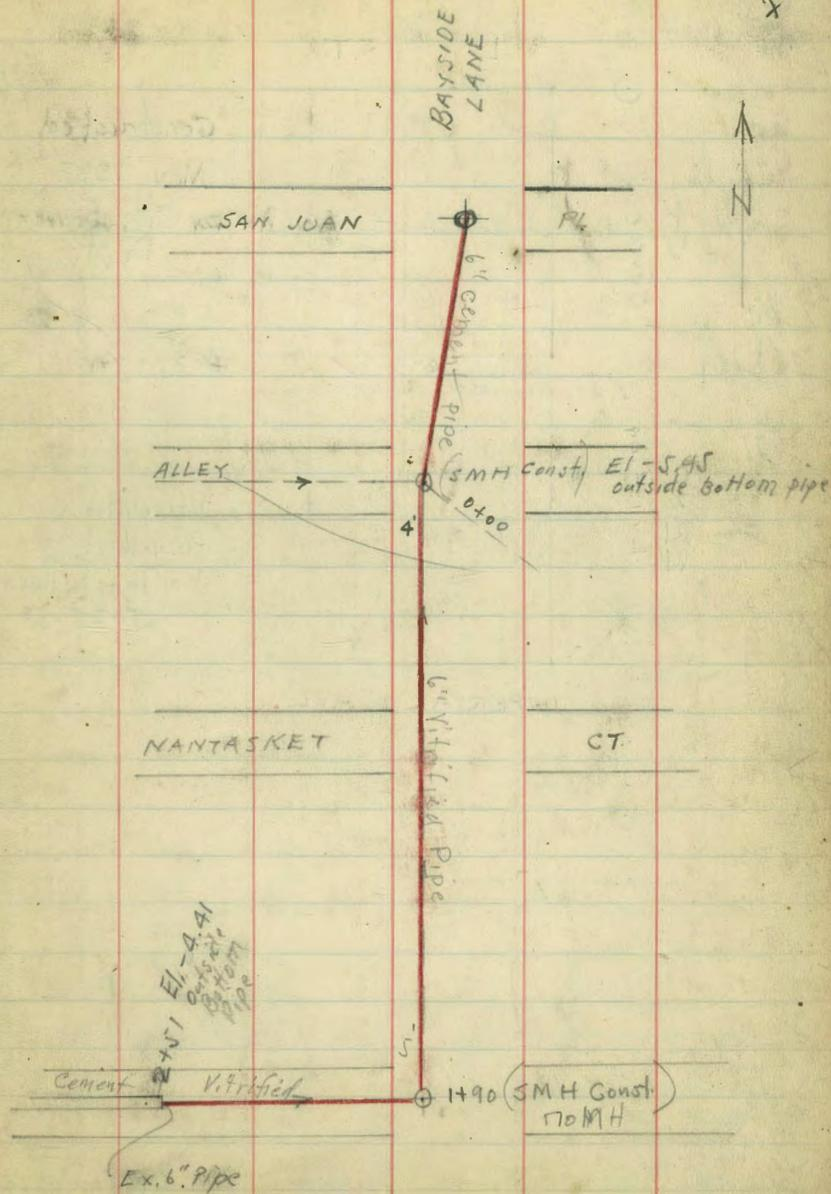 X
BAYSIDE
LANE
N
SAN JUAN PL.
6" Cement Pipe
ALLEY
(SMH Const.) El -5.45
outside Bottom pipe
0+00
4'
6" Vitrified Pipe
NANTASKET CT.
2+51 El. -4.41
outside
Bottom
Pipe
Cement Vitrified
1+90 (SMH Const.
no MH)
Ex. 6" Pipe